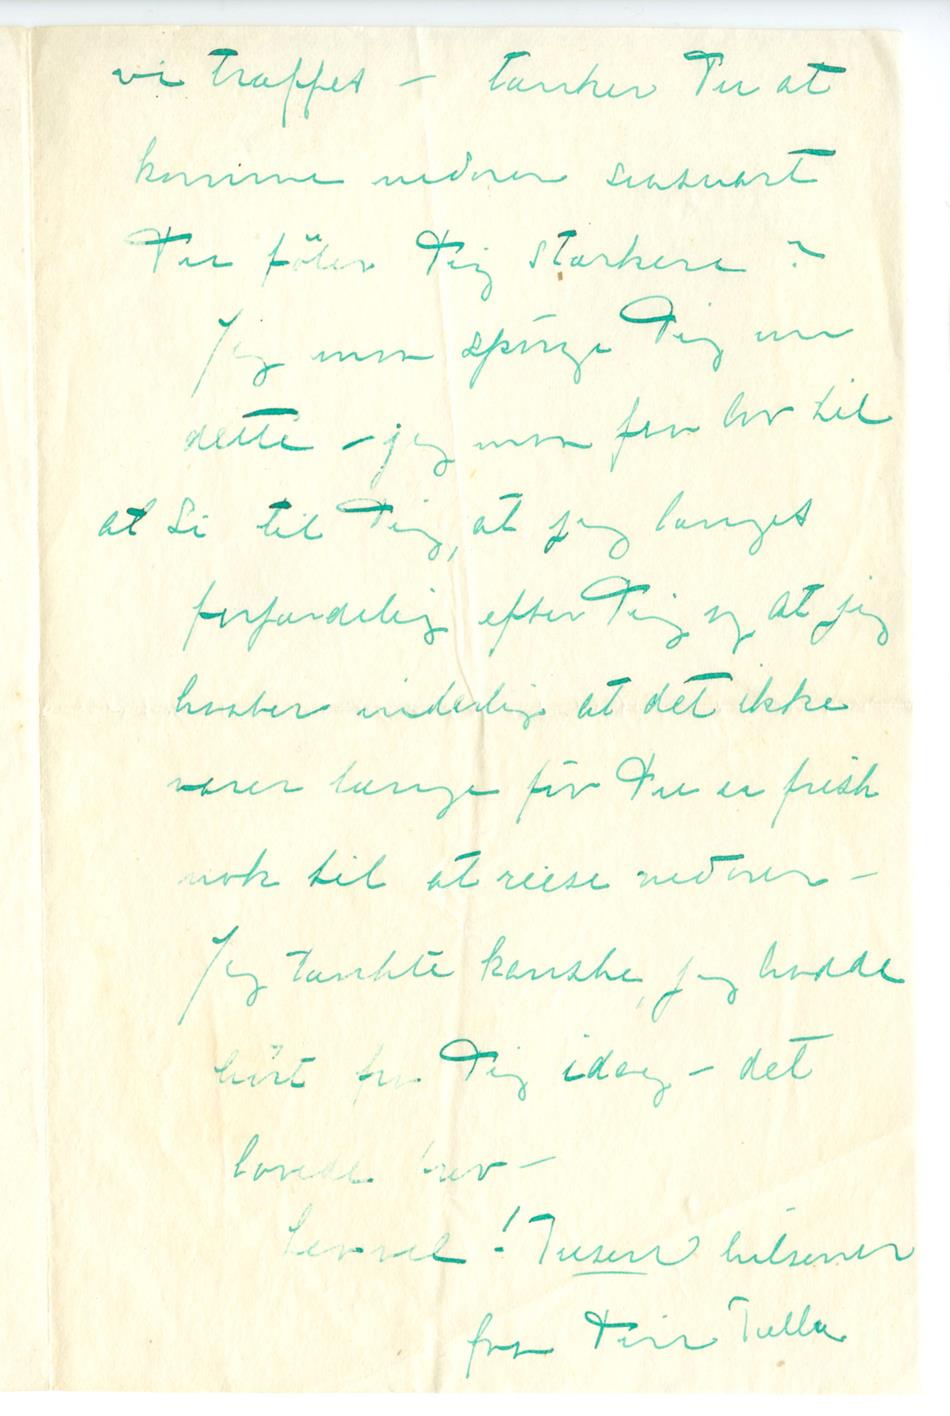 vi træffes – tænker Du at
komme nedover snasnart
Du föler Dig stærkere ?
Jeg maa spörge Dig om
dette – jeg maa faa lov til
at si til Dig, at jeg længes
forfærdelig efter Dig og at jeg
haaber inderlig at det ikke
varer længe för Du er frisk
nok til at reise nedover –
Jeg tænkte kanske, jeg hadde
hört fra Dig idag – det
lovede brev –
Levvel ! Tusen hilsener
fra Din Tulla